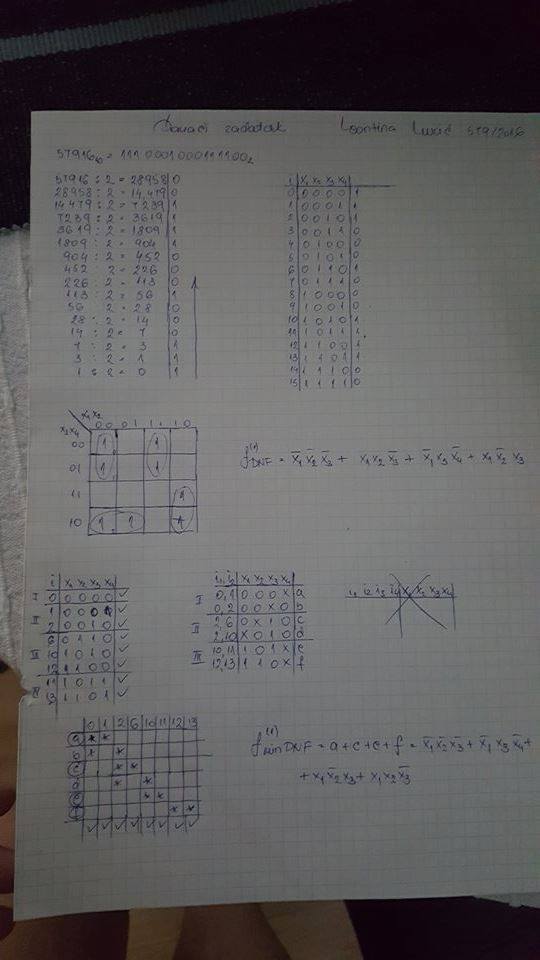 Domaći zadatak Leontina 579/2016
57916₁₀ = 1110001000111100₂
57916 : 2 = 28958 0
28958 : 2 = 14479 0
14479 : 2 = 7239 1
7239 : 2 = 3619 1
3619 : 2 = 1809 1
1809 : 2 = 904 1
904 : 2 = 452 0
452 2 = 226 0
226 : 2 = 113 0
113 : 2 = 56 1
56 : 2 = 28 0
28 : 2 = 14 0
14 : 2 = 7 0
7 : 2 = 3 1
3 : 2 = 1 1
1 : 2 = 0 1
i x₁ x₂ x₃ x₄
0 0 0 0 0 1
1 0 0 0 1 1
2 0 0 1 0 1
3 0 0 1 1 0
4 0 1 0 0 0
5 0 1 0 1 0
6 0 1 1 0 1
7 0 1 1 1 0
8 1 0 0 0 0
9 1 0 0 1 0
10 1 0 1 0 1
11 1 0 1 1 1
12 1 1 0 0 1
13 1 1 0 1 1
14 1 1 1 0 0
15 1 1 1 1 0
x₁x₂
x₃x₄ 00 01 11 10
00 1 1
01 1 1
11 1
10 1 1 1
f⁽¹⁾DNF = x̄₁ x̄₂ x̄₃ + x₁ x₂ x̄₃ + x̄₁ x₃ x̄₄ + x₁ x̄₂ x₃
i x₁ x₂ x₃ x₄
I 0 0 0 0 0 ✓
II 1 0 0 0 1 ✓
2 0 0 1 0 ✓
6 0 1 1 0 ✓
III 10 1 0 1 0 ✓
12 1 1 0 0 ✓
11 1 0 1 1 ✓
13 1 1 0 1 ✓
i₁,i₂ x₁ x₂ x₃ x₄
I 0,1 0 0 0 x a
0,2 0 0 x 0 b
II 2,6 0 x 1 0 c
2,10 x 0 1 0 d
III 10,11 1 0 1 x e
12,13 1 1 0 x f
i₁ i₂ i₃ i₄ x₁ x₂ x₃ x₄
0 1 2 6 10 11 12 13
a * *
b * *
c * *
d * *
e * *
f * *
✓ ✓ ✓ ✓ ✓ ✓ ✓ ✓
f⁽¹⁾minDNF = a + c + e + f = x̄₁ x̄₂ x̄₃ + x̄₁ x₃ x̄₄ +
+ x₁ x̄₂ x₃ + x₁ x₂ x̄₃